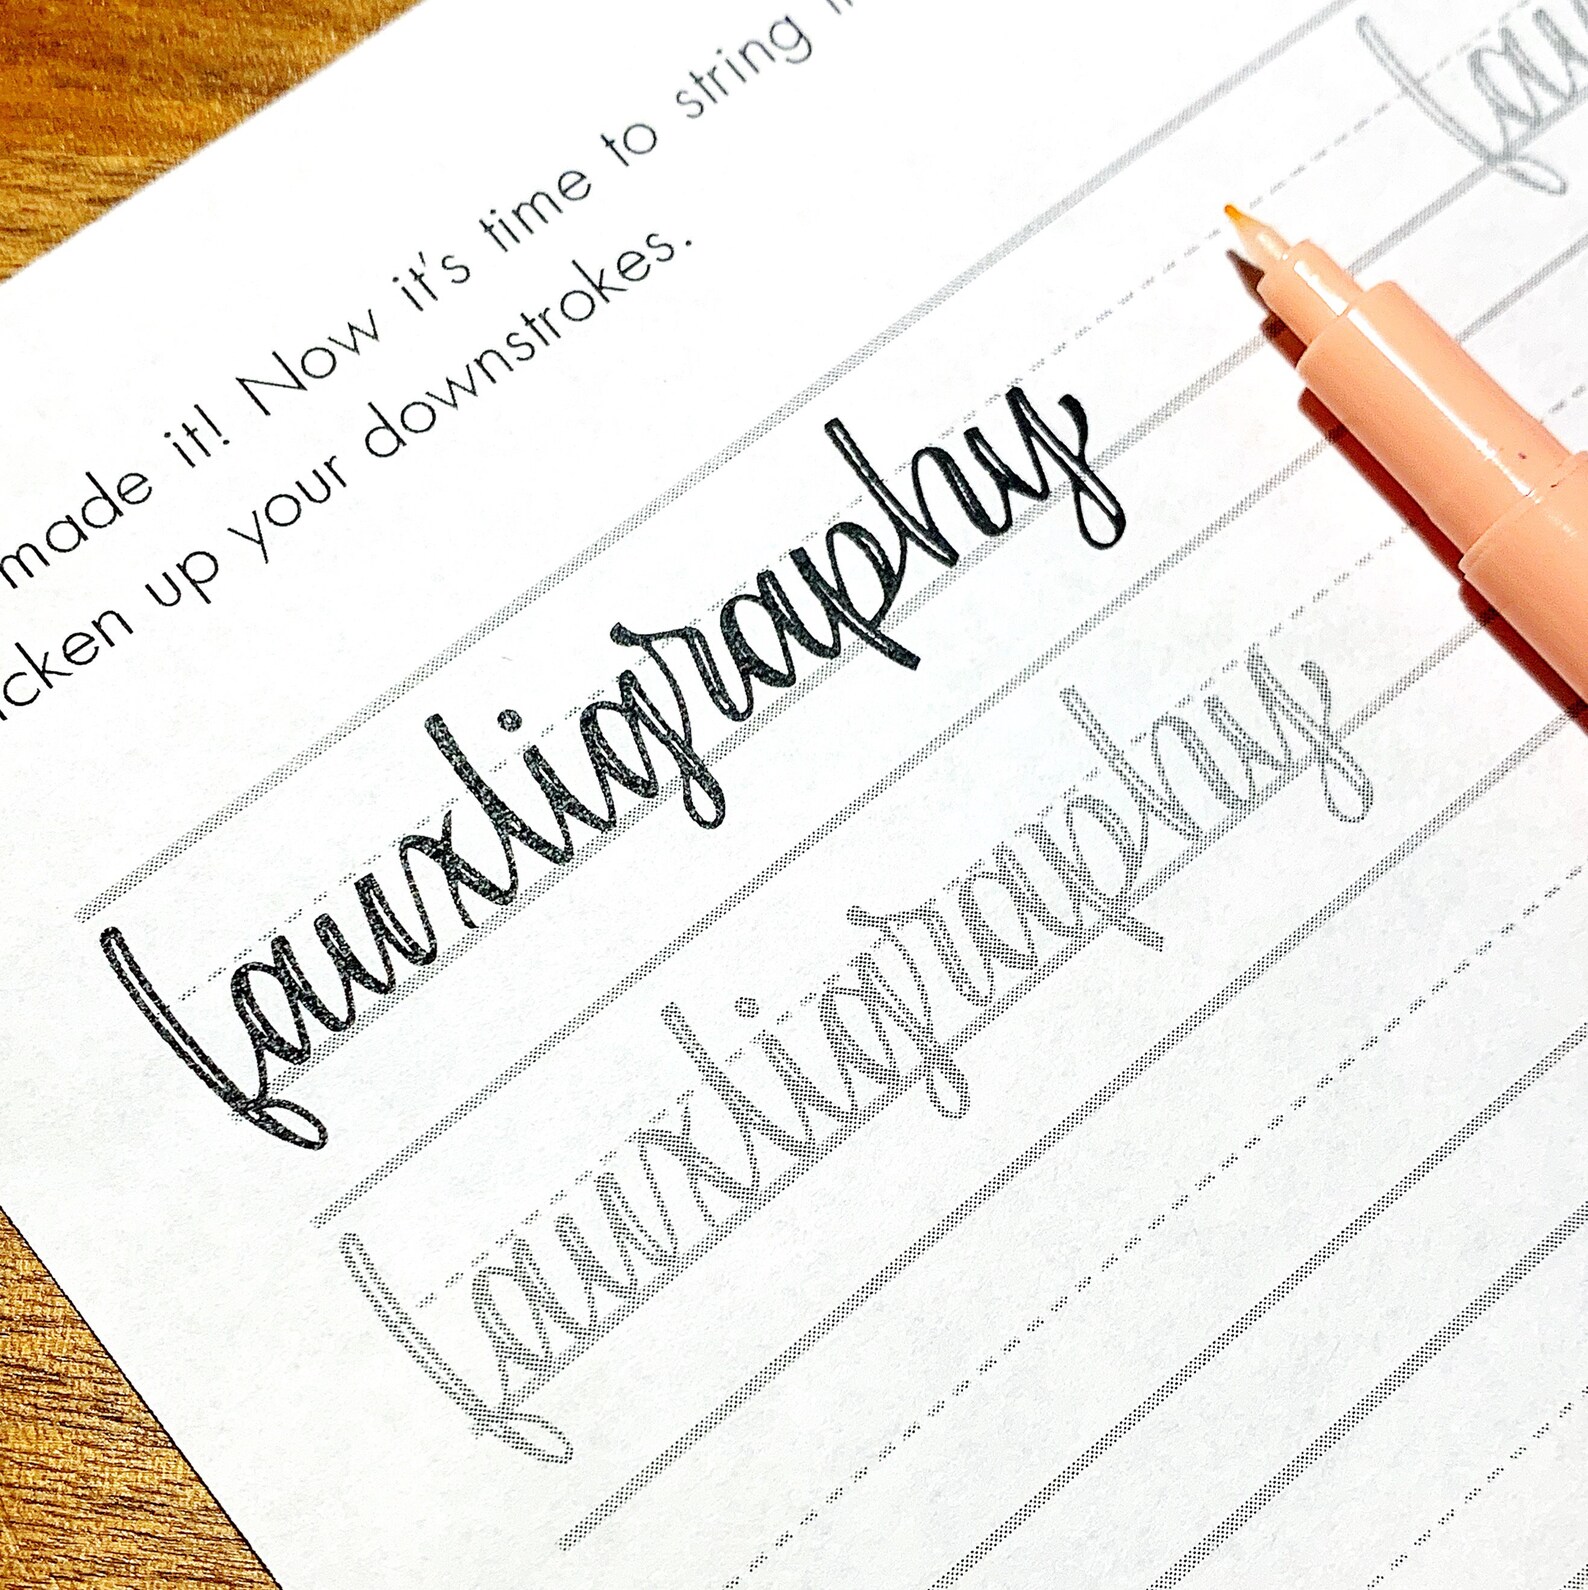 made it! Now it's time to string
icken up your downstrokes.
fauxligraphy fau
fauxligraphy